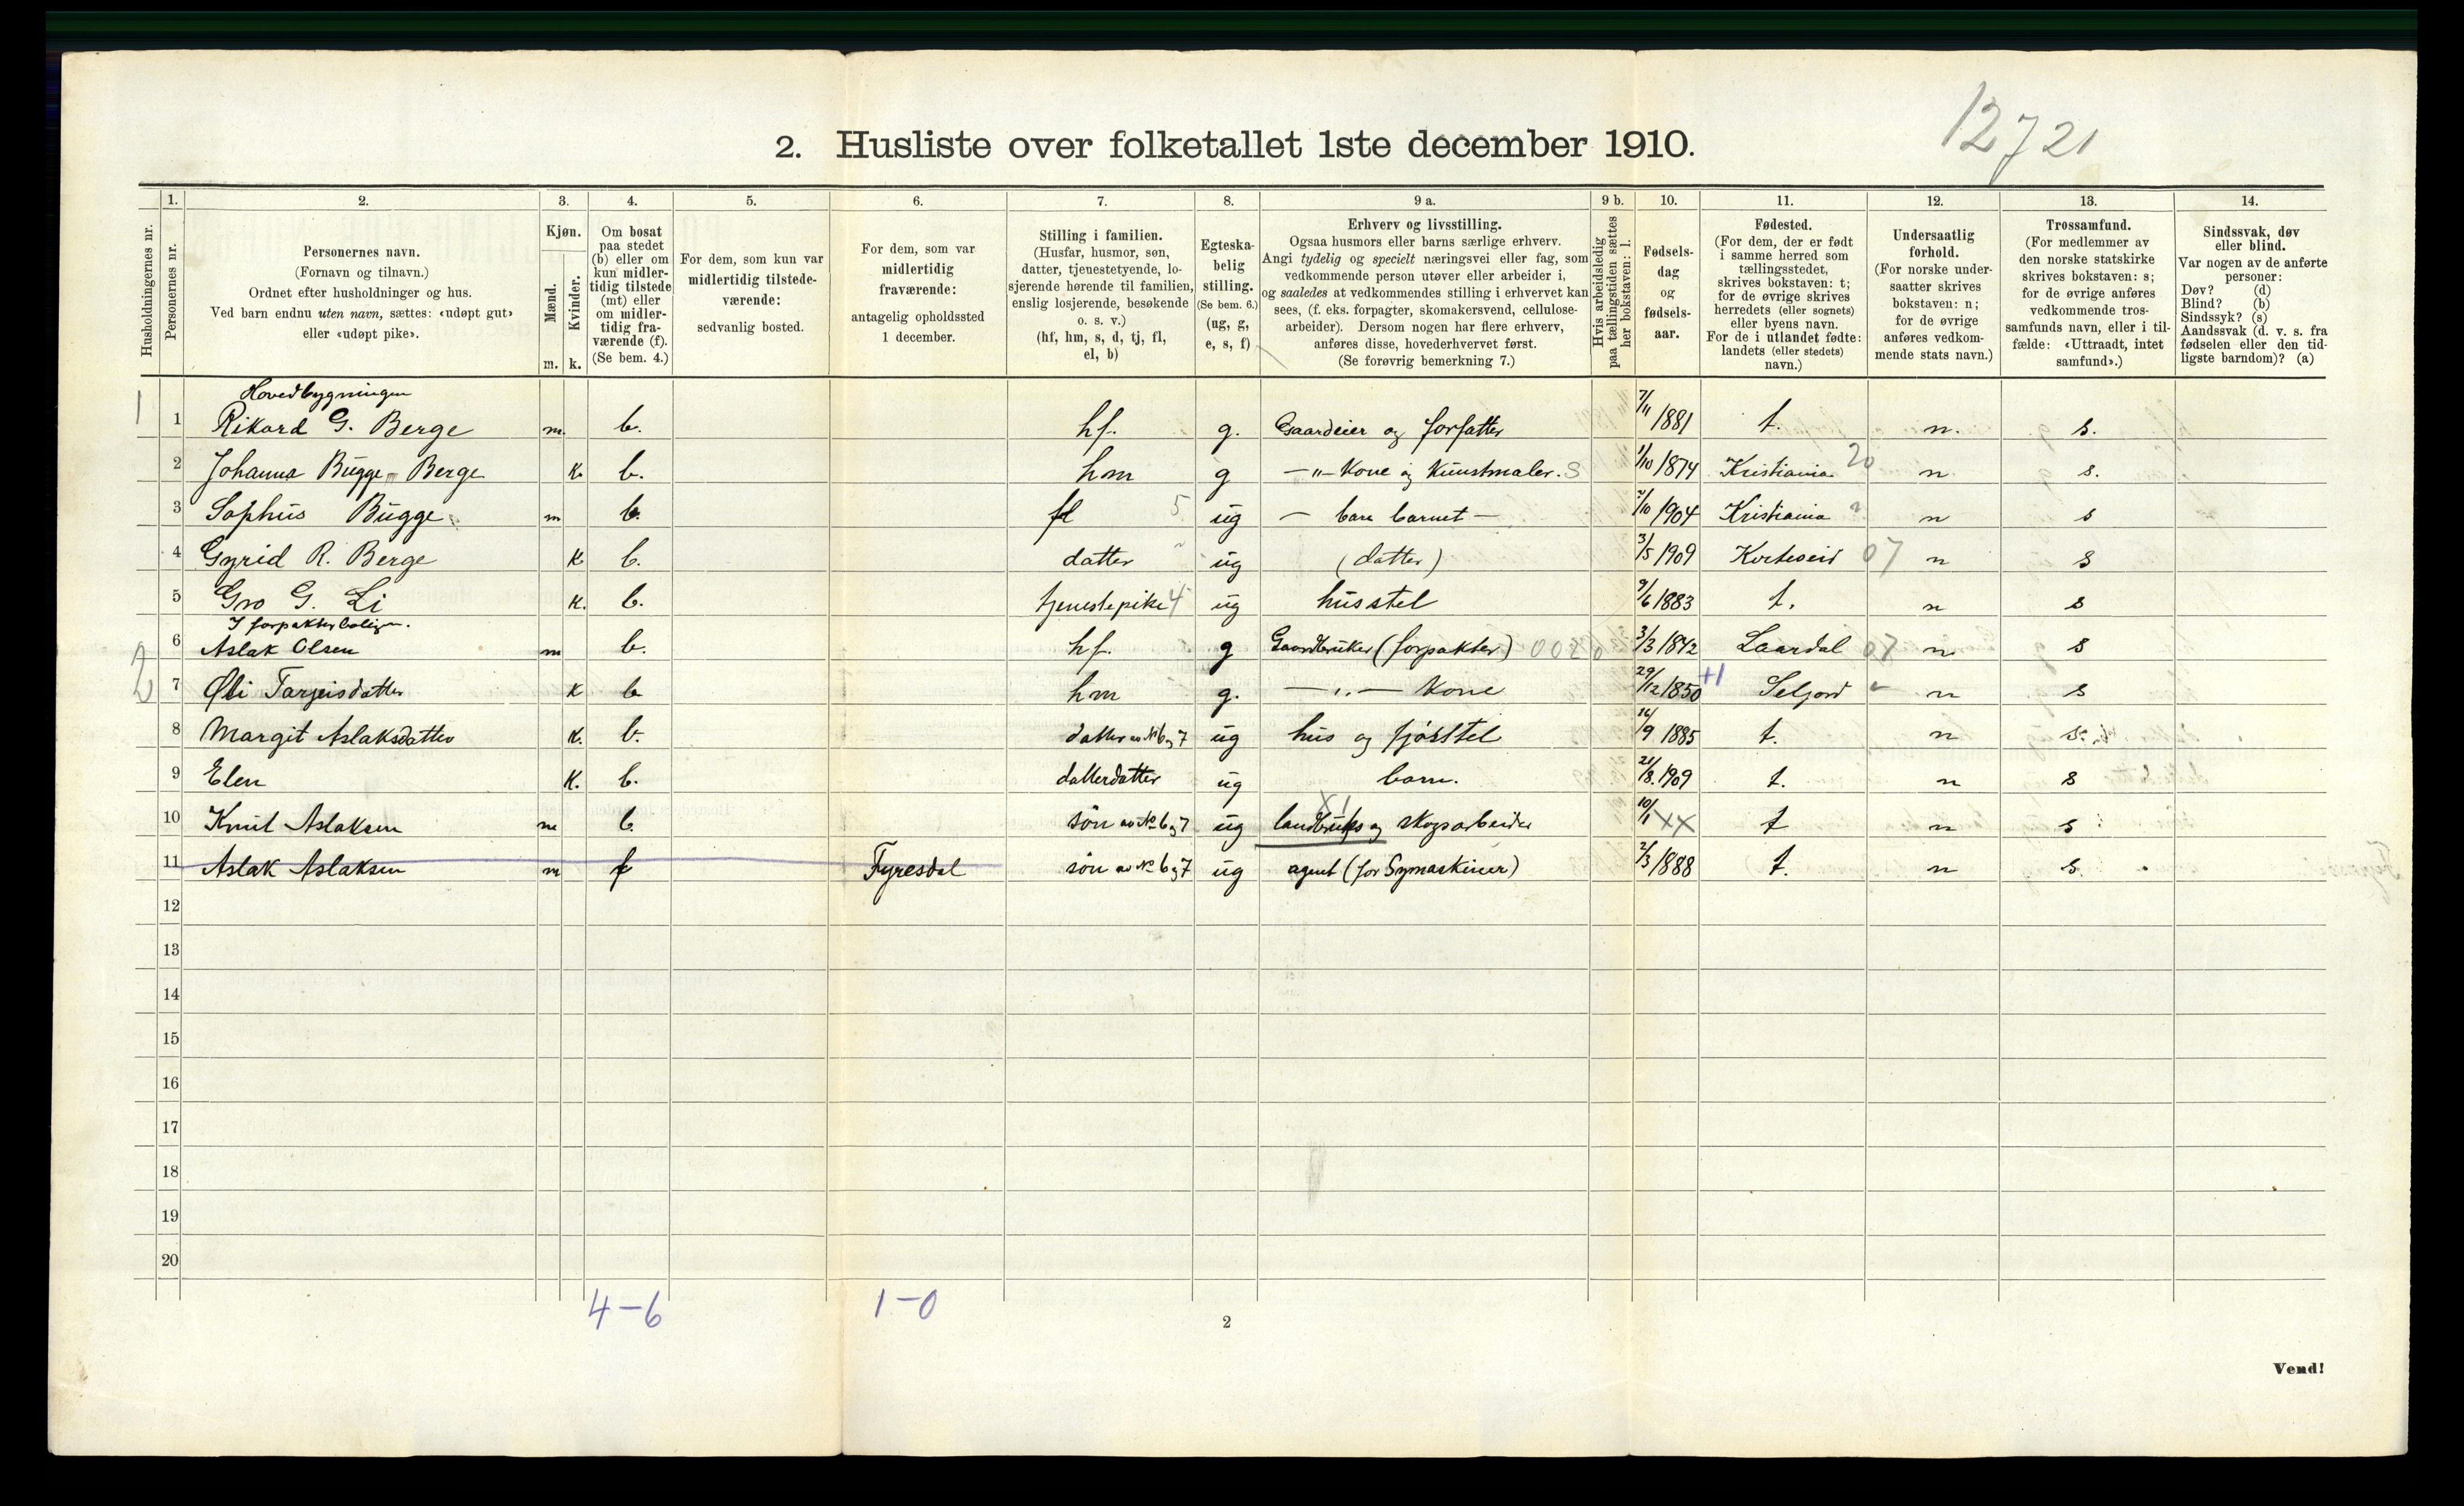 12721
2. Husliste over folketallet 1ste december 1910.
Husholdningernes nr.
1. Personernes nr.
2. Personernes navn.
(Fornavn og tilnavn.)
Ordnet efter husholdninger og hus.
Ved barn endnu uten navn, sættes: «udøpt gut»
eller «udøpt pike».
3. Kjøn.
Mænd. m.
Kvinder. k.
4. Om bosat
paa stedet
(b) eller om
kun midler-
tidig tilstede
(mt) eller
om midler-
tidig fra-
værende (f).
(Se bem. 4.)
5. For dem, som kun var
midlertidig tilstede-
værende:
sedvanlig bosted.
6. For dem, som var
midlertidig
fraværende:
antagelig opholdssted
1 december.
7. Stilling i familien.
(Husfar, husmor, søn,
datter, tjenestetyende, lo-
sjerende hørende til familien,
enslig losjerende, besøkende
o. s. v.)
(hf, hm, s, d, tj, fl,
el, b)
8. Egteska-
belig
stilling.
(Se bem. 6.)
(ug, g,
e, s, f)
9 a. Erhverv og livsstilling.
Ogsaa husmors eller barns særlige erhverv.
Angi tydelig og specielt næringsvei eller fag, som
vedkommende person utøver eller arbeider i,
og saaledes at vedkommendes stilling i erhvervet kan
sees, (f. eks. forpagter, skomakersvend, cellulose-
arbeider). Dersom nogen har flere erhverv,
anføres disse, hovederhvervet først.
(Se forøvrig bemerkning 7.)
9 b. Hvis arbeidsledig
paa tællingstiden sættes
her bokstaven: l.
10. Fødsels-
dag
og
fødsels-
aar.
11. Fødested.
(For dem, der er født
i samme herred som
tællingsstedet,
skrives bokstaven: t;
for de øvrige skrives
herredets (eller sognets)
eller byens navn.
For de i utlandet fødte:
landets (eller stedets)
navn.)
12. Undersaatlig
forhold.
(For norske under-
saatter skrives
bokstaven: n;
for de øvrige
anføres vedkom-
mende stats navn.)
13. Trossamfund.
(For medlemmer av
den norske statskirke
skrives bokstaven: s;
for de øvrige anføres
vedkommende tros-
samfunds navn, eller i til-
fælde: «Uttraadt, intet
samfund».)
14. Sindssvak, døv
eller blind.
Var nogen av de anførte
personer:
Døv? (d)
Blind? (b)
Sindssyk? (s)
Aandssvak (d. v. s. fra
fødselen eller den tid-
ligste barndom)? (a)
Hovedbygningen
1 1 Rikard G. Berge m. b. hf. g. Gaardeier og forfatter 7/11 1881 t. n. s.
2 Johanna Bugge Berge K. b. hm g —"— Kone og Kunstmaler. S 1/10 1874 Kristiania 20 n s.
3 Sophus Bugge m b. fl 5 ug — bare barnet — 7/10 1904 Kristiania n s
4 Gyrid R. Berge K b. datter ug (datter) 3/5 1909 Kviteseid 07 n s
5 Gro G. Li K. b. tjenestepike 4 ug husstel 9/6 1883 t. n s
I forpakterboligen.
2 6 Aslak Olsen m b. hf. g Gaardbruker (forpakter) 3/3 1842 Laardal 07 n s
7 Øli Targeisdatter K b hm g. —"— Kone 29/12 1850 +1 Seljord n s
8 Margit Aslaksdatter K. b. datter av No 6 og 7 ug hus og fjøsstel 16/9 1885 t. n s.
9 Elen K. b. datterdatter ug barn. 21/8. 1909 t. n s
10 Knut Aslaksen m b. søn av No 6 og 7 ug landbruks og skogsarbeider 10/1 XX t n s
11 Aslak Aslaksen m f Fyresdal søn av No 6 og 7 ug agent (for Symaskiner) 2/3 1888 t. n s.
12
13
14
15
16
17
18
19
20
4–6 1–0
2
Vend!